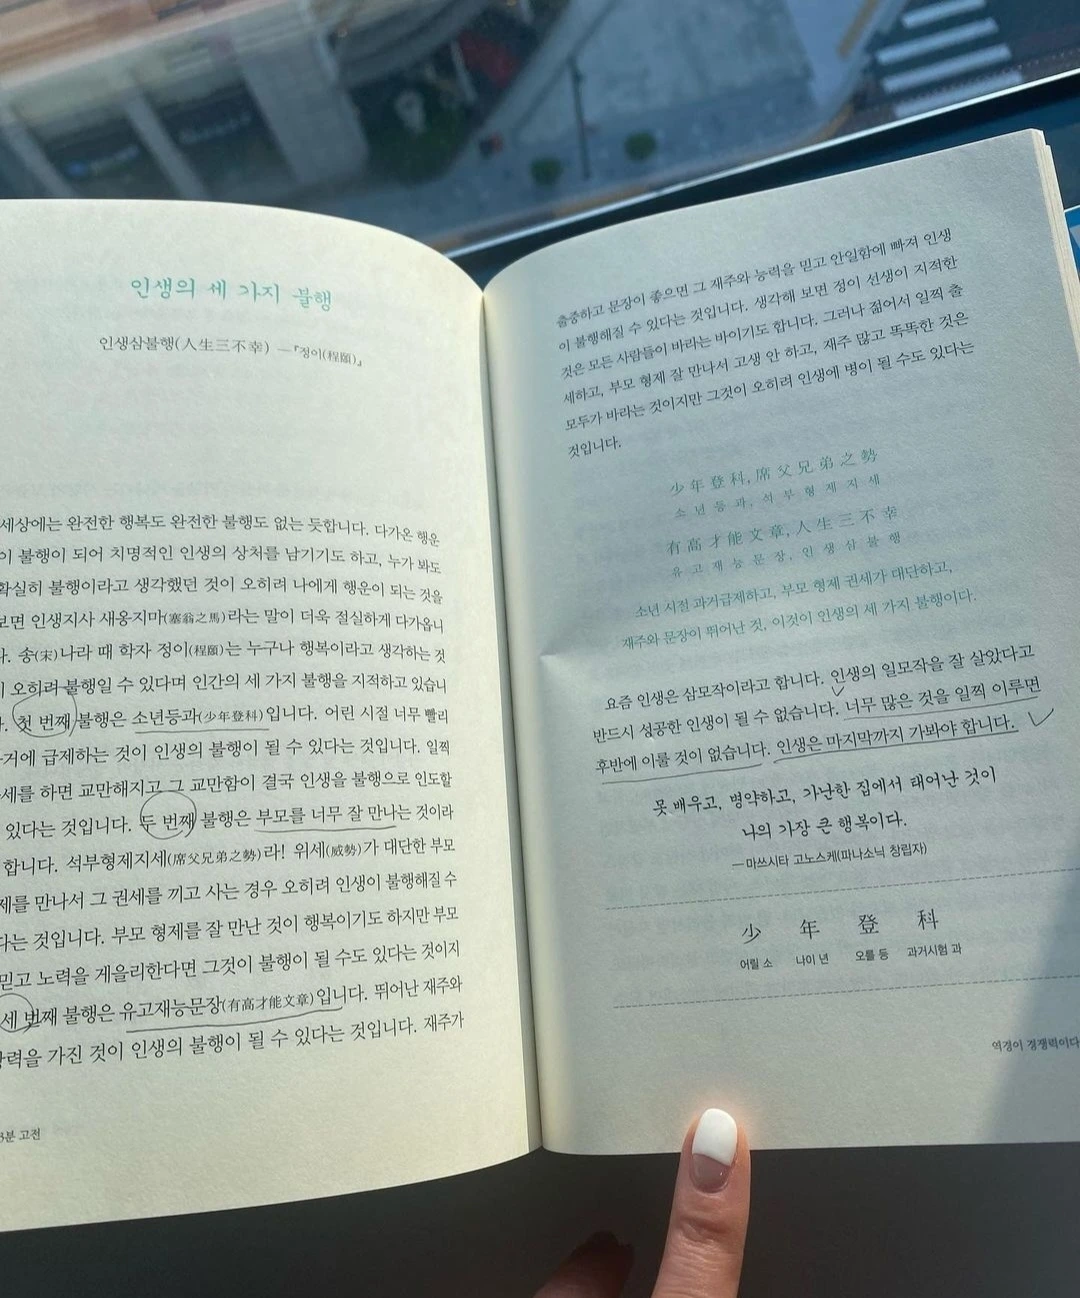 인생의 세 가지 불행
인생삼불행(人生三不幸) ─『정이(程頤)』
세상에는 완전한 행복도 완전한 불행도 없는 듯합니다. 다가온 행운
이 불행이 되어 치명적인 인생의 상처를 남기기도 하고, 누가 봐도
확실히 불행이라고 생각했던 것이 오히려 나에게 행운이 되는 것을
보면 인생지사 새옹지마(塞翁之馬)라는 말이 더욱 절실하게 다가옵니
다. 송(宋)나라 때 학자 정이(程頤)는 누구나 행복이라고 생각하는 것
이 오히려 불행일 수 있다며 인간의 세 가지 불행을 지적하고 있습니
다. 첫 번째 불행은 소년등과(少年登科)입니다. 어린 시절 너무 빨리
과거에 급제하는 것이 인생의 불행이 될 수 있다는 것입니다. 일찍
출세를 하면 교만해지고 그 교만함이 결국 인생을 불행으로 인도할
수 있다는 것입니다. 두 번째 불행은 부모를 너무 잘 만나는 것이라
합니다. 석부형제지세(席父兄弟之勢)라! 위세(威勢)가 대단한 부모
형제를 만나서 그 권세를 끼고 사는 경우 오히려 인생이 불행해질 수
있다는 것입니다. 부모 형제를 잘 만난 것이 행복이기도 하지만 부모
믿고 노력을 게을리한다면 그것이 불행이 될 수도 있다는 것이지
세 번째 불행은 유고재능문장(有高才能文章)입니다. 뛰어난 재주와
문장력을 가진 것이 인생의 불행이 될 수 있다는 것입니다. 재주가
3분 고전
출중하고 문장이 좋으면 그 재주와 능력을 믿고 안일함에 빠져 인생
이 불행해질 수 있다는 것입니다. 생각해 보면 정이 선생이 지적한
것은 모든 사람들이 바라는 바이기도 합니다. 그러나 젊어서 일찍 출
세하고, 부모 형제 잘 만나서 고생 안 하고, 재주 많고 똑똑한 것은
모두가 바라는 것이지만 그것이 오히려 인생에 병이 될 수도 있다는
것입니다.
少年登科, 席父兄弟之勢
소년등과, 석부형제지세
有高才能文章, 人生三不幸
유고재능문장, 인생삼불행
소년 시절 과거급제하고, 부모 형제 권세가 대단하고,
재주와 문장이 뛰어난 것, 이것이 인생의 세 가지 불행이다.
요즘 인생은 삼모작이라고 합니다. 인생의 일모작을 잘 살았다고
반드시 성공한 인생이 될 수 없습니다. 너무 많은 것을 일찍 이루면
후반에 이룰 것이 없습니다. 인생은 마지막까지 가봐야 합니다.
못 배우고, 병약하고, 가난한 집에서 태어난 것이
나의 가장 큰 행복이다.
─ 마쓰시타 고노스케(파나소닉 창립자)
少 年 登 科
어릴 소 나이 년 오를 등 과거시험 과
역경이 경쟁력이다